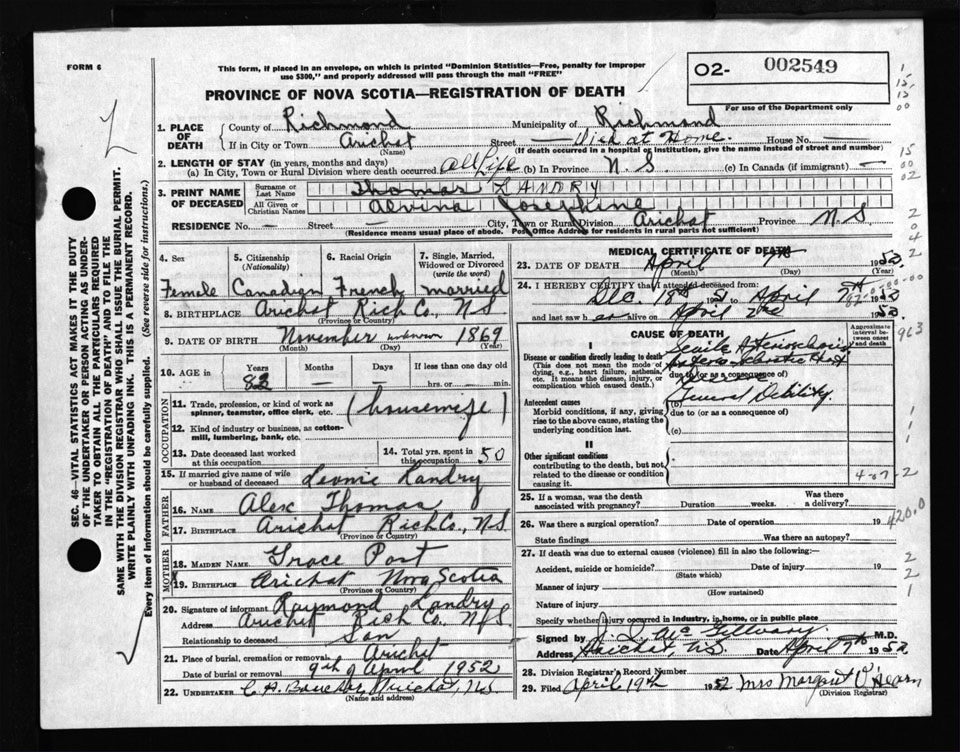 FORM 6
This form, if placed in an envelope, on which is printed "Dominion Statistics—Free, penalty for improper
use $300," and properly addressed will pass through the mail "FREE"
PROVINCE OF NOVA SCOTIA—REGISTRATION OF DEATH
02- 002549
For use of the Department only
1. PLACE OF DEATH
County of Richmond Municipality of Richmond
If in City or Town Arichat Street Died at Home. House No. —
(Name) (If death occurred in a hospital or institution, give the name instead of street and number)
2. LENGTH OF STAY (in years, months and days)
(a) In City, Town or Rural Division where death occurred All Life (b) In Province N. S. (c) In Canada (if immigrant) —
3. PRINT NAME OF DECEASED
Surname or Last Name Thomas LANDRY
All Given or Christian Names Alvina Josephine
RESIDENCE No. — Street — City, Town or Rural Division Arichat Province N.S.
(Residence means usual place of abode. Post Office Address for residents in rural parts not sufficient)
4. Sex Female
5. Citizenship (Nationality) Canadian
6. Racial Origin French
7. Single, Married, Widowed or Divorced (write the word) married
8. BIRTHPLACE Arichat Rich Co., N S
(Province or Country)
9. DATE OF BIRTH November unknown 1869
(Month) (Day) (Year)
10. AGE in Years 82 Months — Days — If less than one day old
hrs. or min.
OCCUPATION
11. Trade, profession, or kind of work as spinner, teamster, office clerk, etc. (housewife)
12. Kind of industry or business, as cotton-mill, lumbering, bank, etc.
13. Date deceased last worked at this occupation
14. Total yrs. spent in this occupation 50
15. If married give name of wife or husband of deceased Landry
FATHER
16. Name Alex Thomas
17. BIRTHPLACE Arichat Rich Co., N S
(Province or Country)
MOTHER
18. MAIDEN NAME Grace Post
19. BIRTHPLACE Arichat Nova Scotia
(Province or Country)
20. Signature of informant Raymond Landry
Address Arichat Rich Co., N.S.
Relationship to deceased Son
21. Place of burial, cremation or removal Arichat
Date of burial or removal 9th of April 1952
22. UNDERTAKER Arichat, NS
(Name and address)
MEDICAL CERTIFICATE OF DEATH
23. DATE OF DEATH April 7th 1952
(Month) (Day) (Year)
24. I HEREBY CERTIFY that I attended deceased from:
Dec. 18th 51 to April 1952
and last saw h er alive on April 2nd 1952
CAUSE OF DEATH
Approximate interval between onset and death
I
Disease or condition directly leading to death
(This does not mean the mode of dying, e.g., heart failure, asthenia, etc. It means the disease, injury, or complication which caused death.)
Senile
due to (or as a consequence of)
General Debility
Antecedent causes
Morbid conditions, if any, giving rise to the above cause, stating the underlying condition last.
due to (or as a consequence of)
(c)
II
Other significant conditions
contributing to the death, but not related to the disease or condition causing it.
25. If a woman, was the death associated with pregnancy? Duration weeks. Was there a delivery?
26. Was there a surgical operation? Date of operation 19
State findings Was there an autopsy?
27. If death was due to external causes (violence) fill in also the following:—
Accident, suicide or homicide? Date of injury 19
(State which)
Manner of injury
(How sustained)
Nature of injury
Specify whether injury occurred in industry, in home, or in public place
Signed by M.D.
Address Arichat, N.S. Date April 7th 1952
28. Division Registrar's Record Number
29. Filed April 19th 1952 Mrs Margaret O'Hearn
(Division Registrar)
SEC. 46—VITAL STATISTICS ACT MAKES IT THE DUTY
OF THE UNDERTAKER OR PERSON ACTING AS UNDER-
TAKER TO OBTAIN ALL THE PARTICULARS REQUIRED
IN THE "REGISTRATION OF DEATH" AND TO FILE THE
SAME WITH THE DIVISION REGISTRAR WHO SHALL ISSUE THE BURIAL PERMIT.
WRITE PLAINLY WITH UNFADING INK. THIS IS A PERMANENT RECORD.
Every item of information should be carefully supplied. (See reverse side for instructions.)
963
420.0